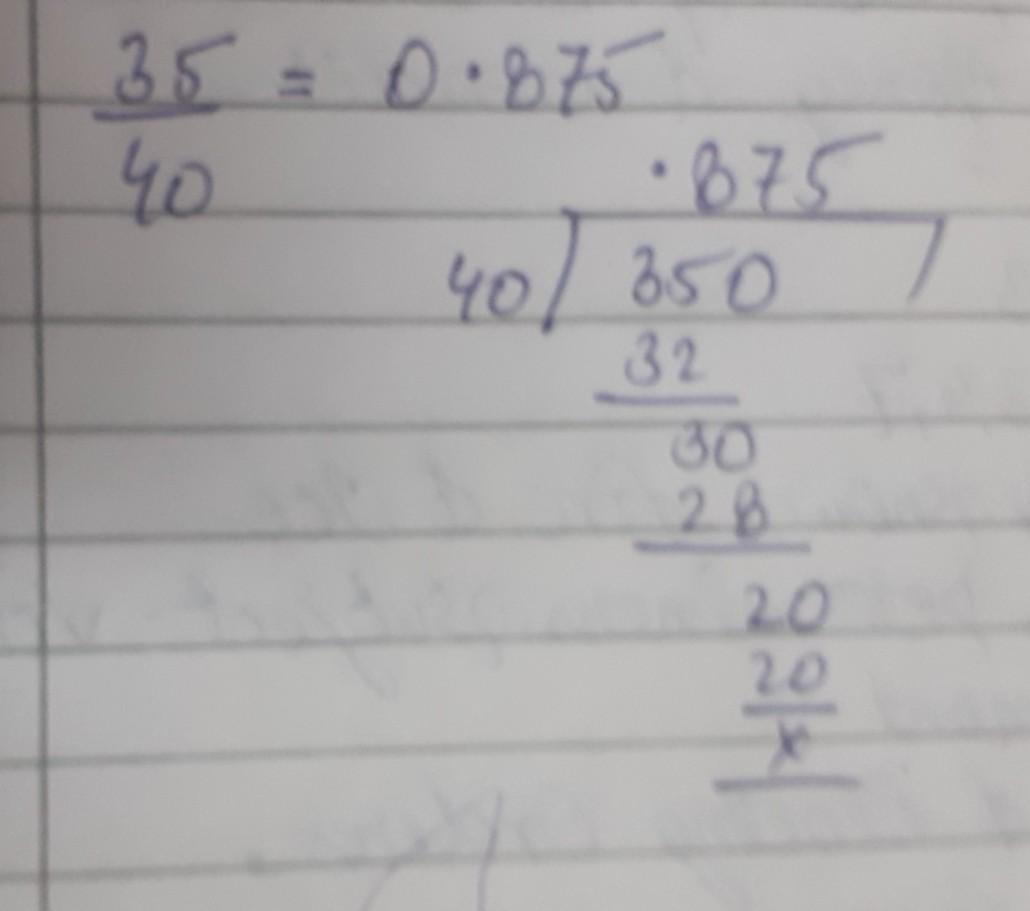 35 = 0.875
40
.875
40 350
32
30
28
20
20
x